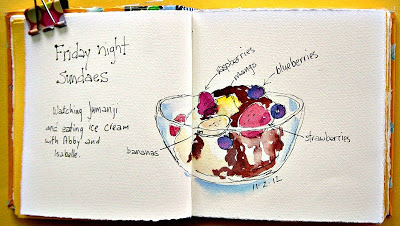 Friday night
Sundaes
Watching Jumanji
and eating ice cream
with Abby and
Isabelle.
raspberries
mango
blueberries
bananas
strawberries
11·2·12